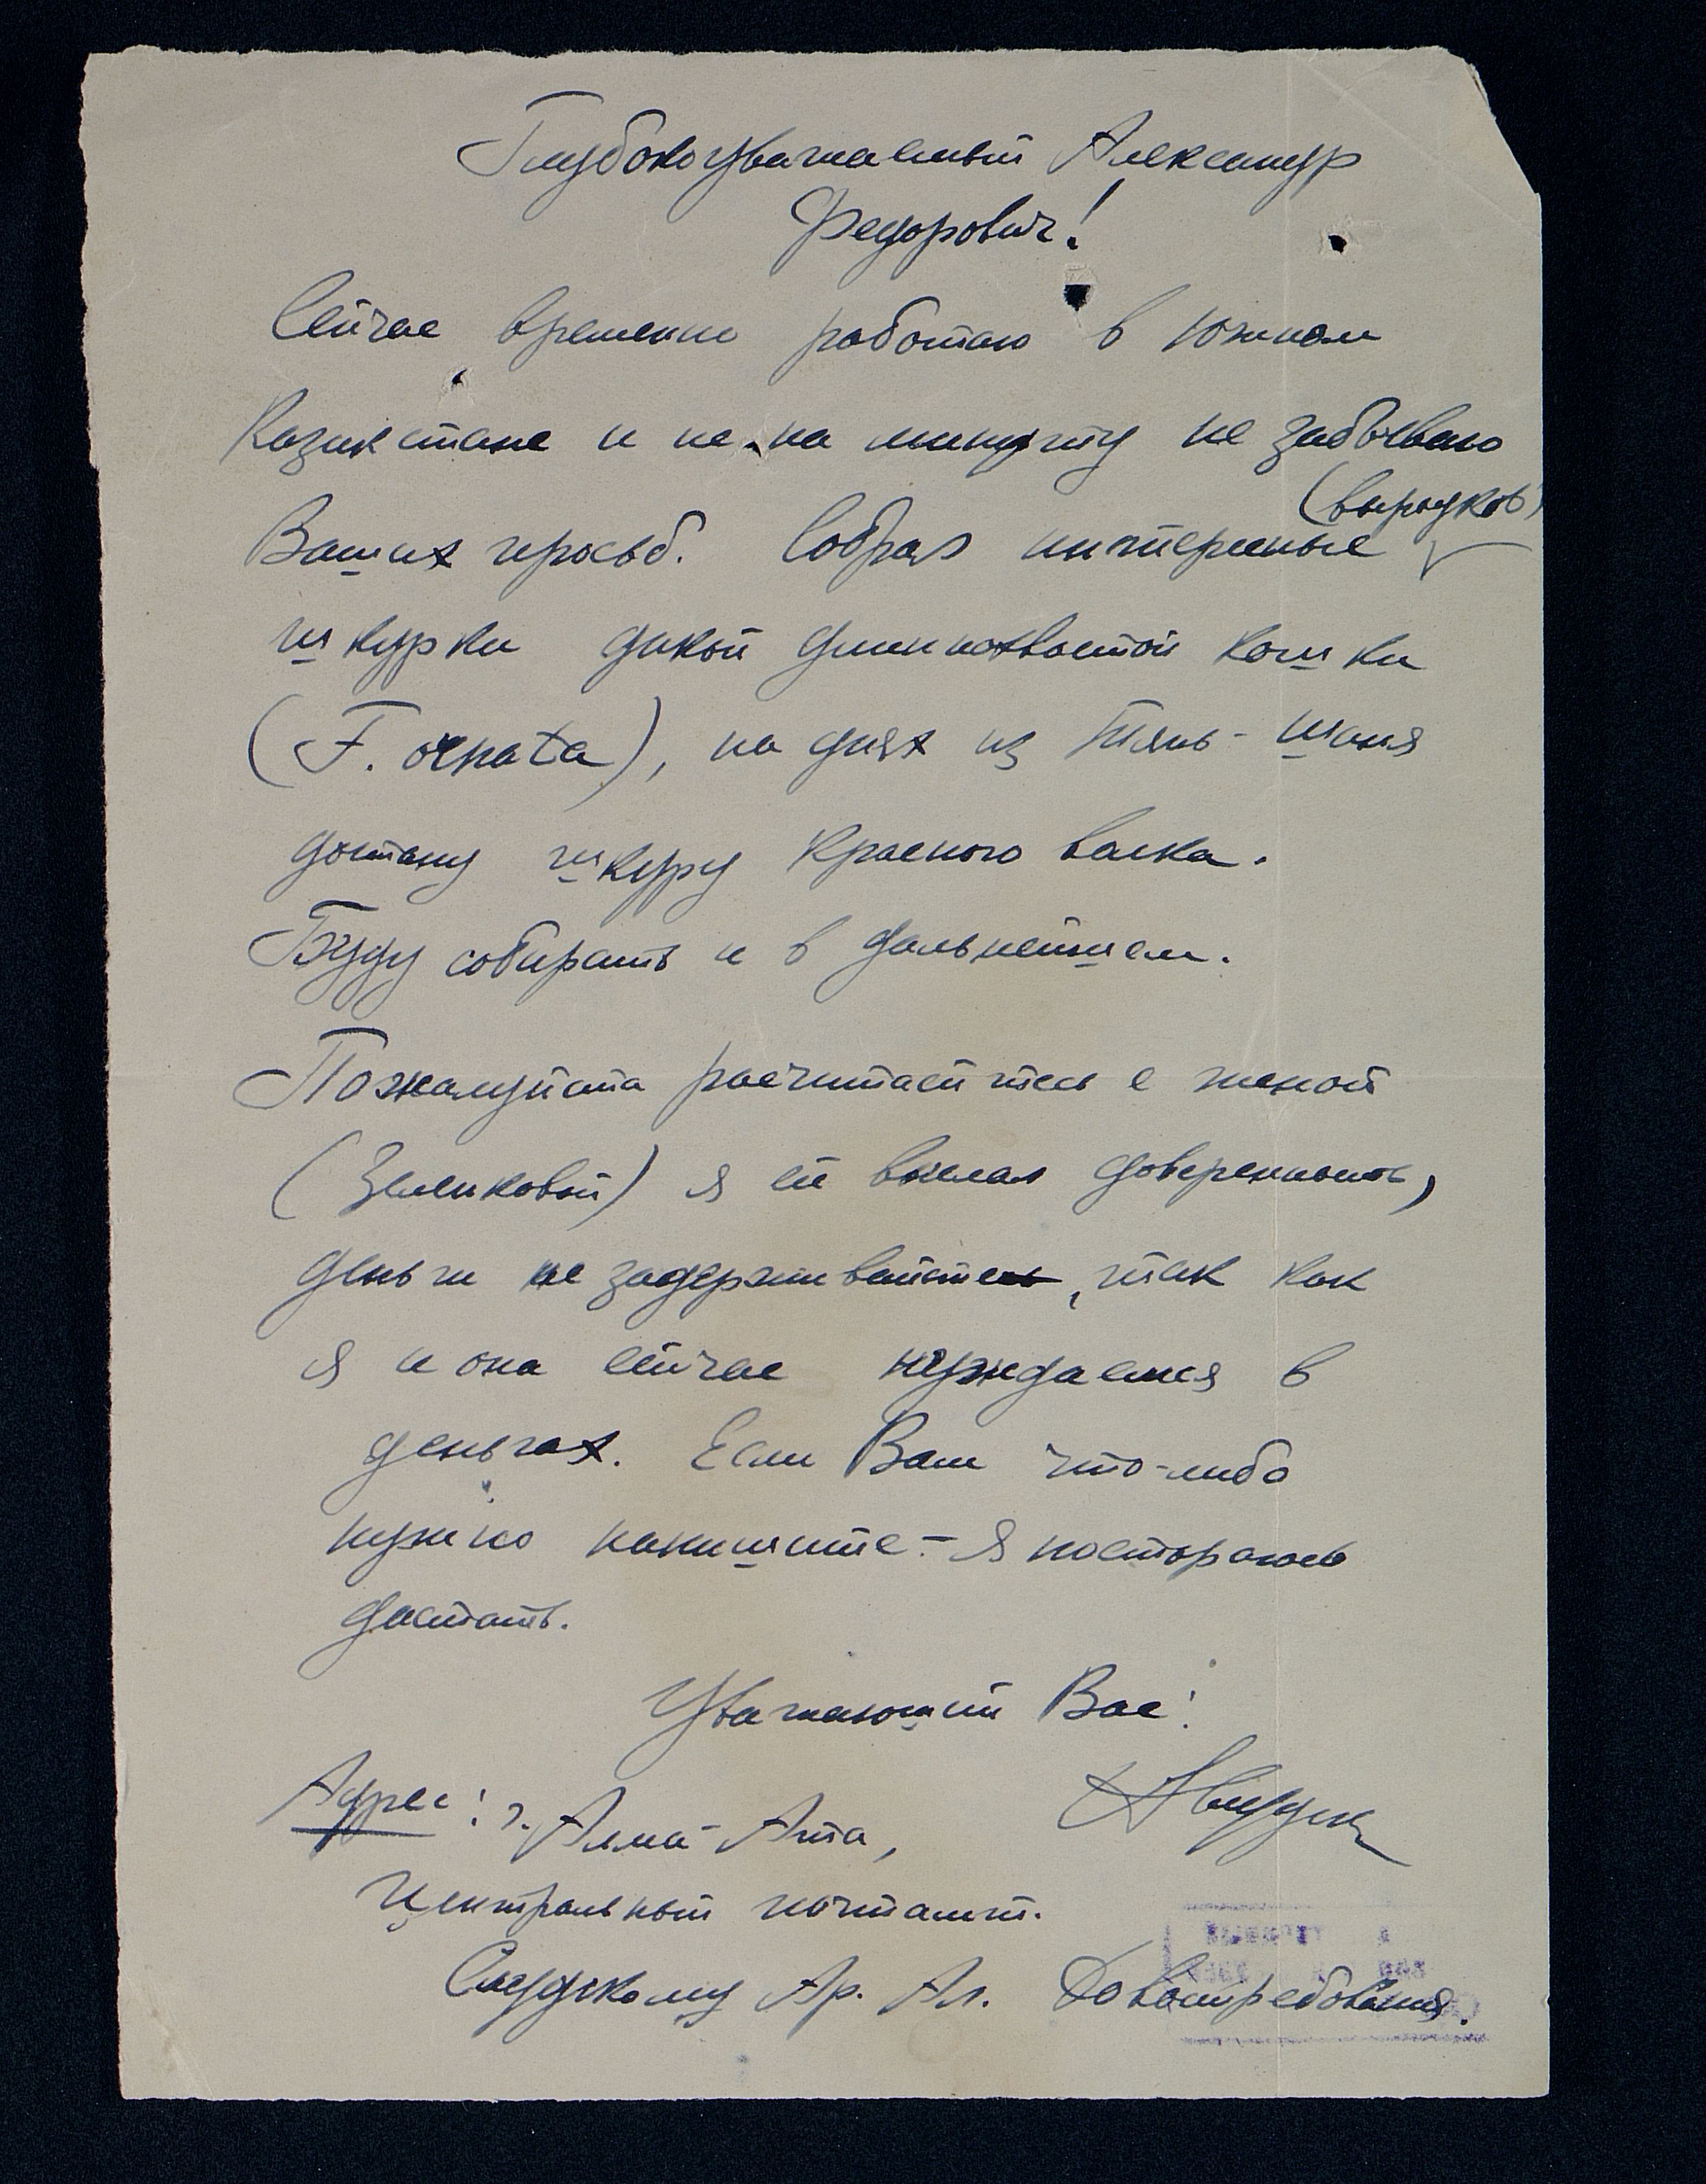 Глубокоуважаемый Александр
Федорович!
Сейчас временно работаю в Южном
Казакстане и не на минуту не забываю
(выродков)
Ваших просьб. Собрал интереные
шкурки дикой длиннохвостой кошки
(F. ornata), на днях из Тянь-Шаня
достану шкуру красного волка.
Буду собирать и в дальнейшем.
Пожалуйста расчитайтесь с женой
(Зеленковой) я ей выслал доверенность,
деньги не задерживайте, так как
я и она сейчас нуждаемся в
деньгах. Если Вам что-либо
нужно напишите - я постораюсь
достать.
Уважающий Вас!
Адрес: г. Алма-Ата,
Центральный почтамт.
Слудскому Ар. Ал. Довостребования.